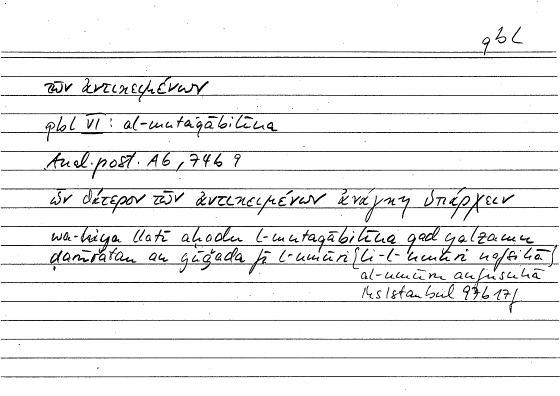 qbl
τῶν ἀντικειμένων
qbl VI: al-mutaqābilīna
Anal. post. A6, 74b 9
ὧν θάτερον τῶν ἀντικειμένων ἀνάγκη ὑπάρχειν
wa-hiya llatī aḥadu l-mutaqābilīna qad yalzamu
ḍarūratan an yūǧada fī l-umūri {li-l-umūri nafsihā}
al-umūri anfusihā
Ms Istanbul 97b 17f